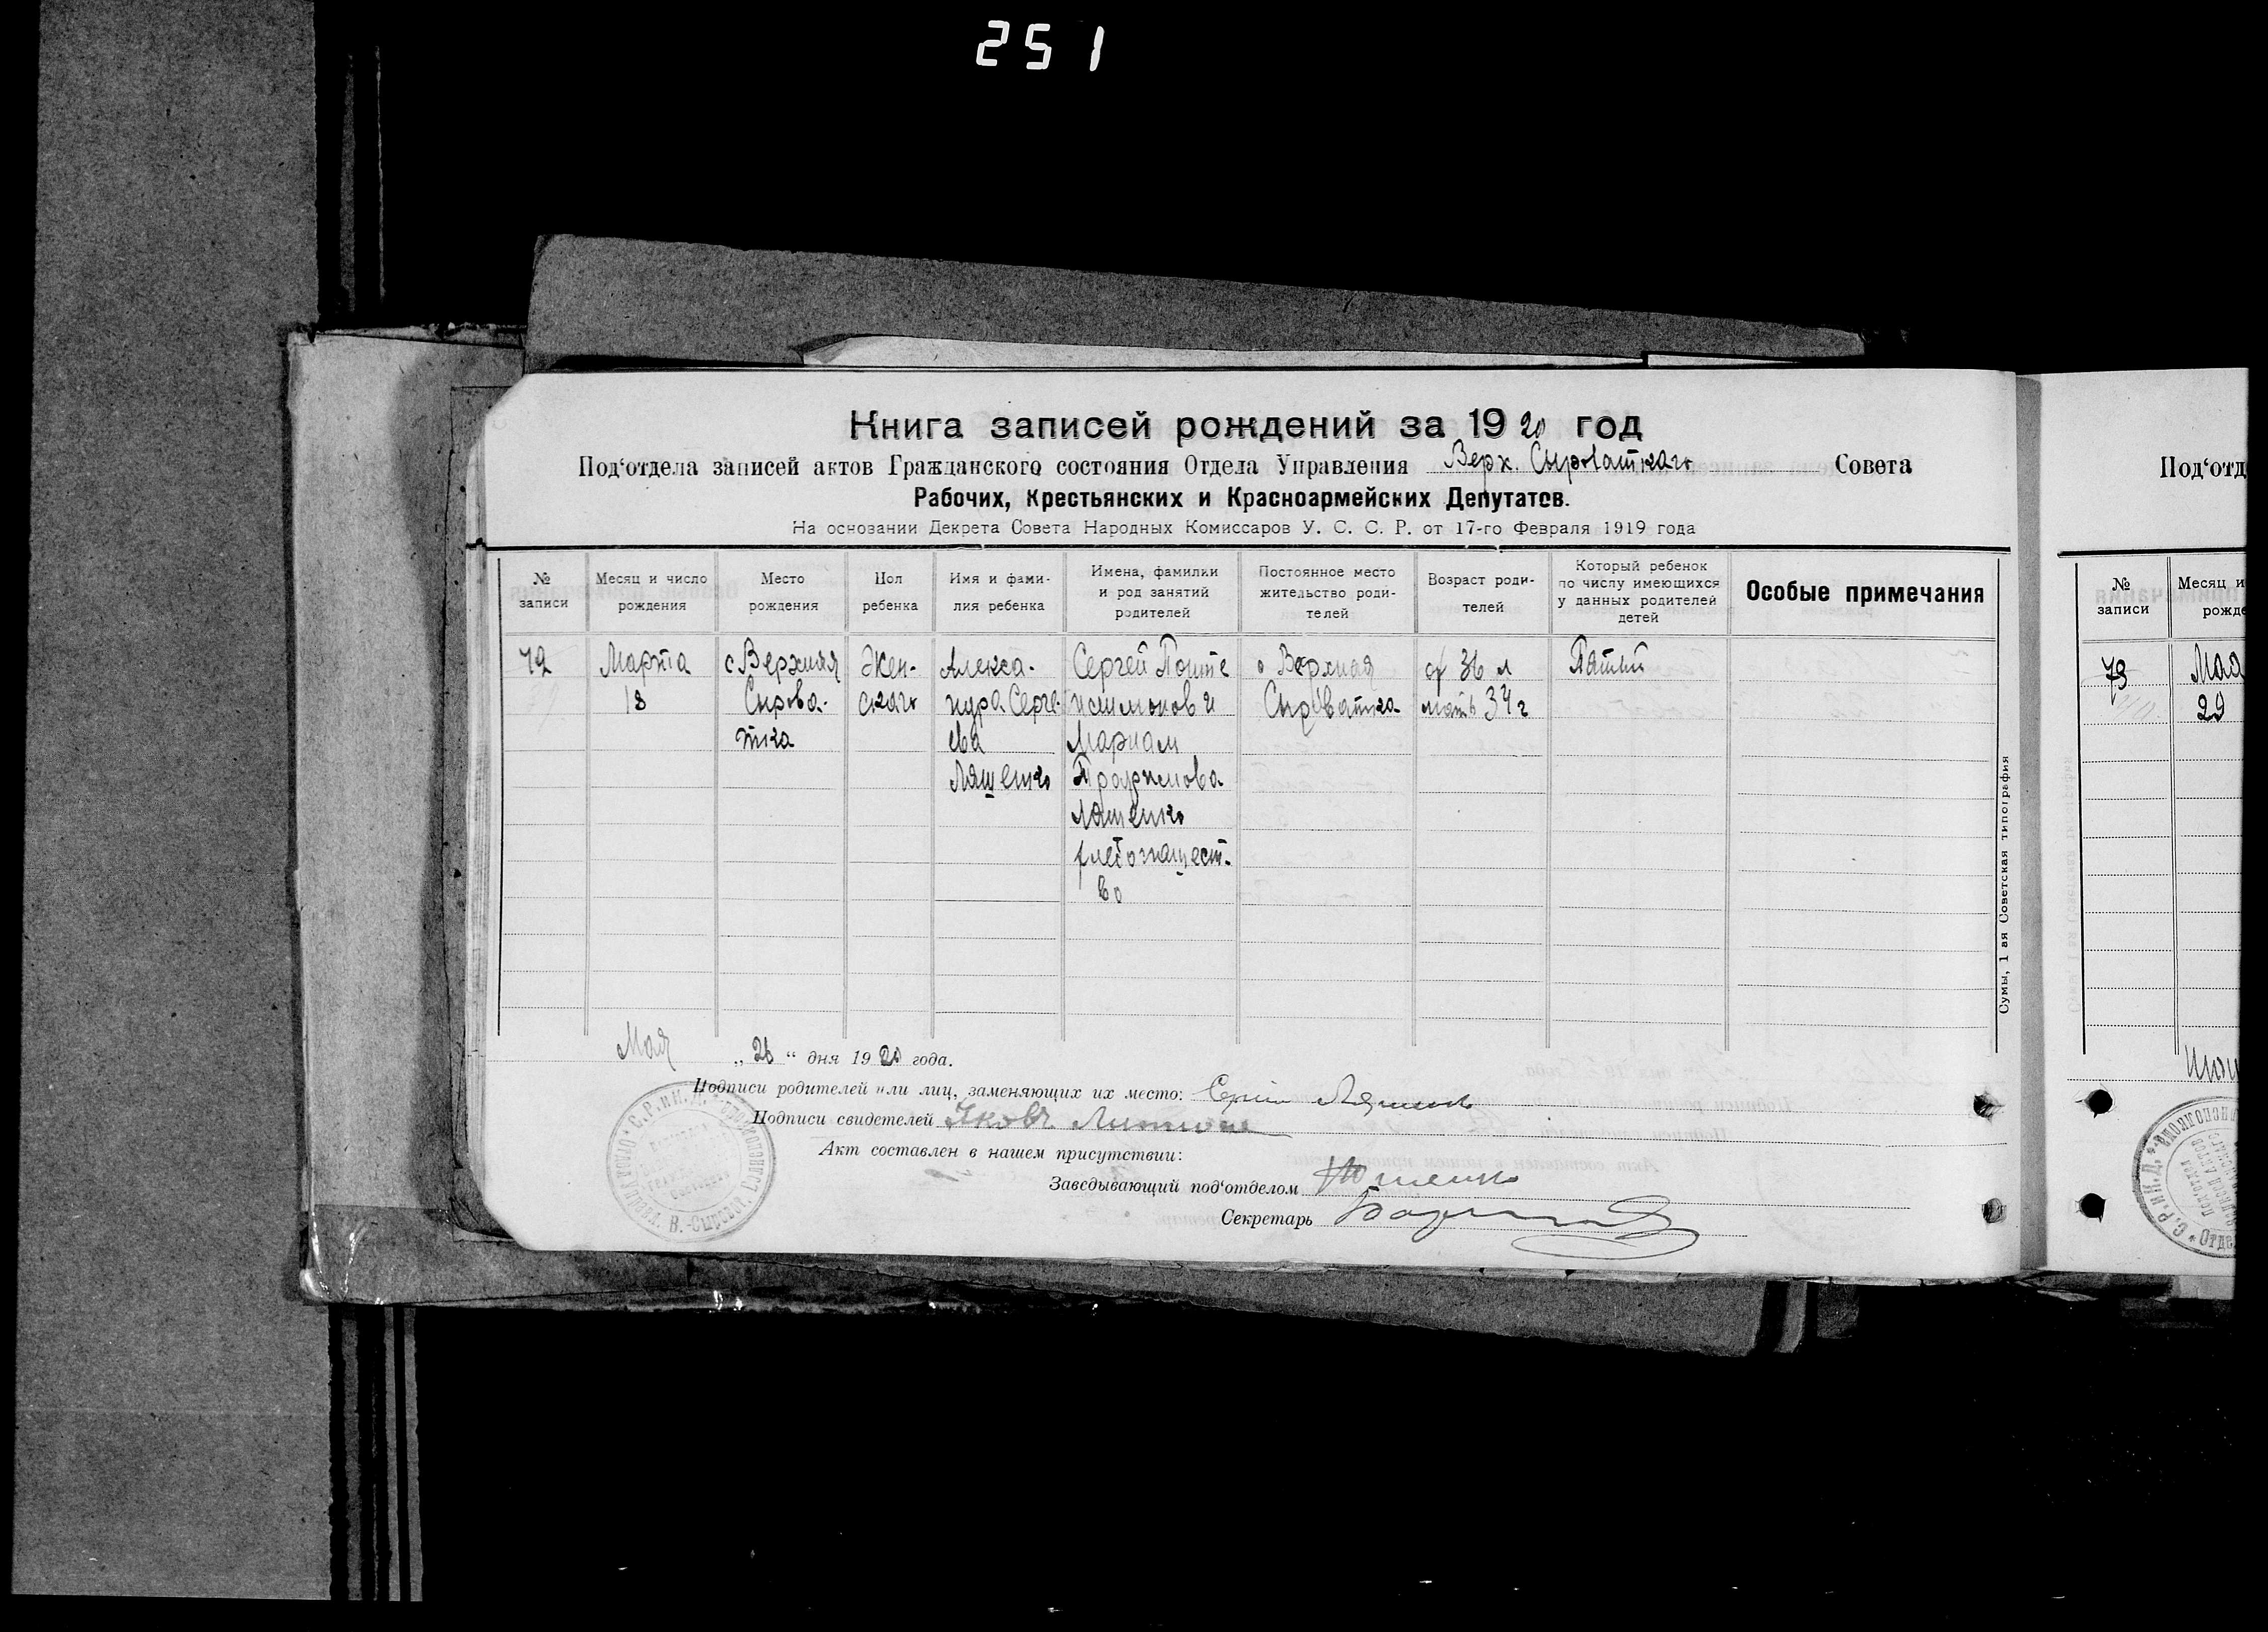 251
Книга записей рождений за 1920 год
Под‘отдела записей актов Гражданского состояния Отдела Управления Верх. Сыроватскаго Совета
Рабочих, Крестьянских и Красноармейских Депутатов.
На основании Декрета Совета Народных Комиссаров У. С. С. Р. от 17-го Февраля 1919 года
№ записи
Месяц и число рождения
Место рождения
Пол ребенка
Имя и фами-
лия ребенка
Имена, фамилки
и род занятий
родителей
Постоянное место
жительство роди-
телей
Возраст роди-
телей
Который ребенок
по числу имеющихся
у данных родителей
детей
Особые примечания
72
Марта
18
с Верхняя
Сырова-
тка
Жен-
скаго
Алекса-
ндра Серге-
ева
Ляшенко
Сергей
и
Мариам
Ляшенко
хлебопашест-
во
Верхная
Сыроватка
36 л
мать 34 г
Пятый
Мая „26“ дня 1920 года.
Подписи родителей или лиц, заменяющих их место: Сергій Ляшенко
Подписи свидетелей Яковъ
Акт составлен в нашем присутствии:
Заведывающий под‘отделом
Секретарь
Сумы, 1 ая Советская типография
Под‘отд
№ записи
Месяц и
рожде
73
29